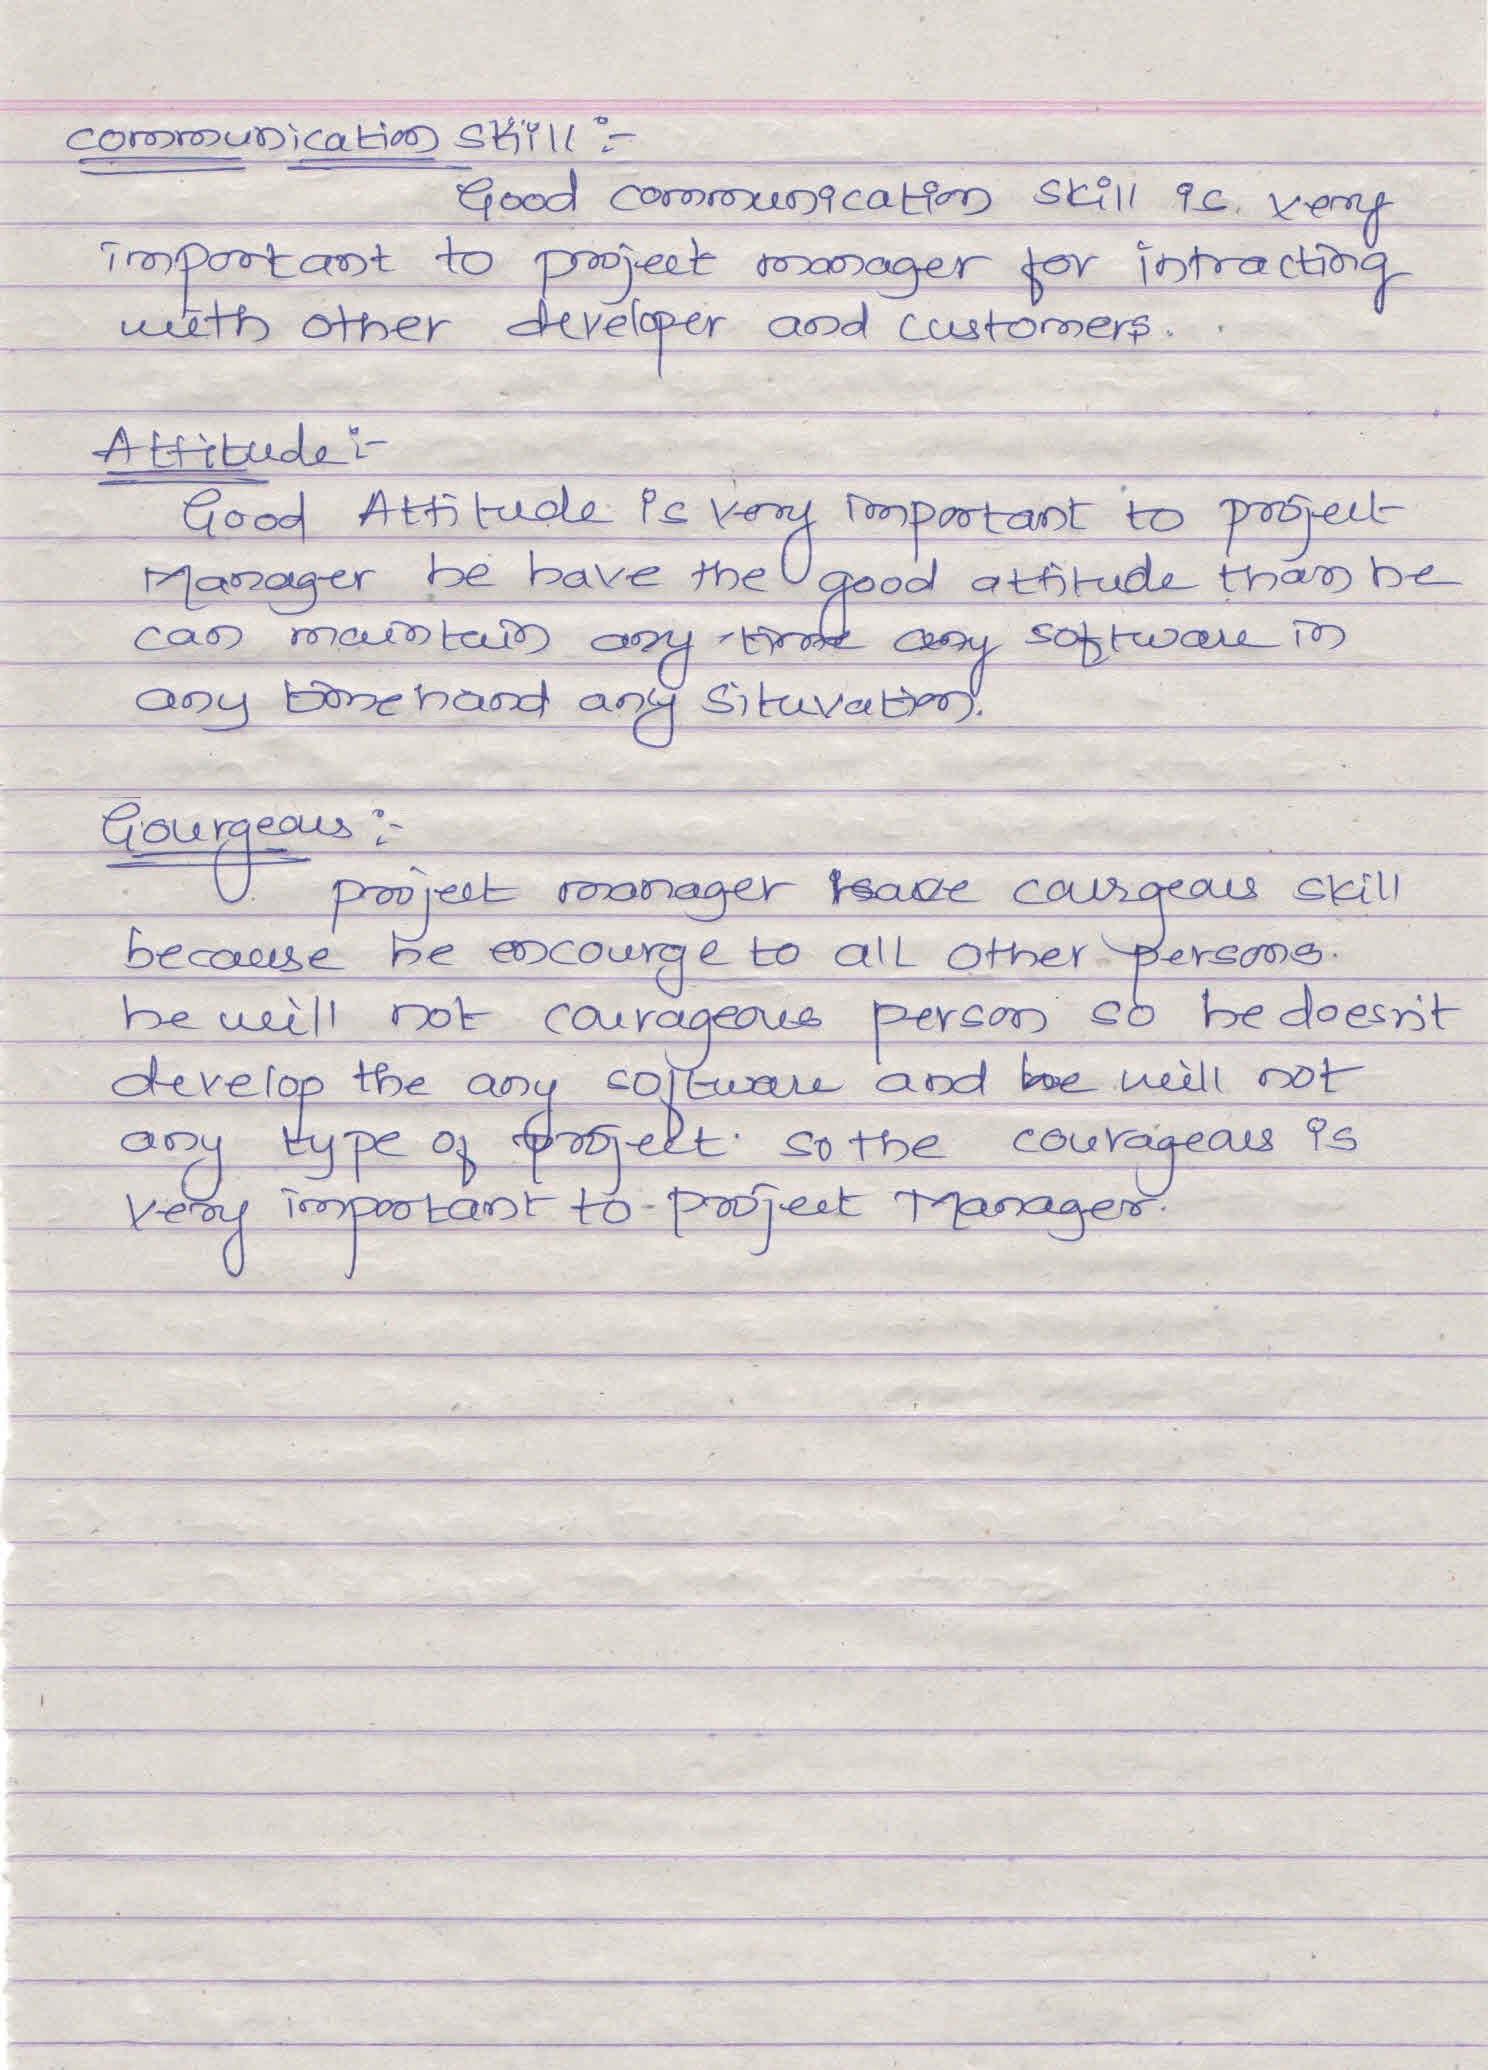 communication skill :-
Good communication skill is very
important to project manager for intracting
with other developer and customers.
Attitude :-
Good Attitude is very important to project
Manager he have the good attitude than he
can maintain any time any software in
any time hand any situvation.
Gourgeous :-
project manager have courgeous skill
because he encourge to all other persons.
he will not courageous person so he doesn't
develop the any software and he will not
any type of project. so the courageous is
very important to project Manager.